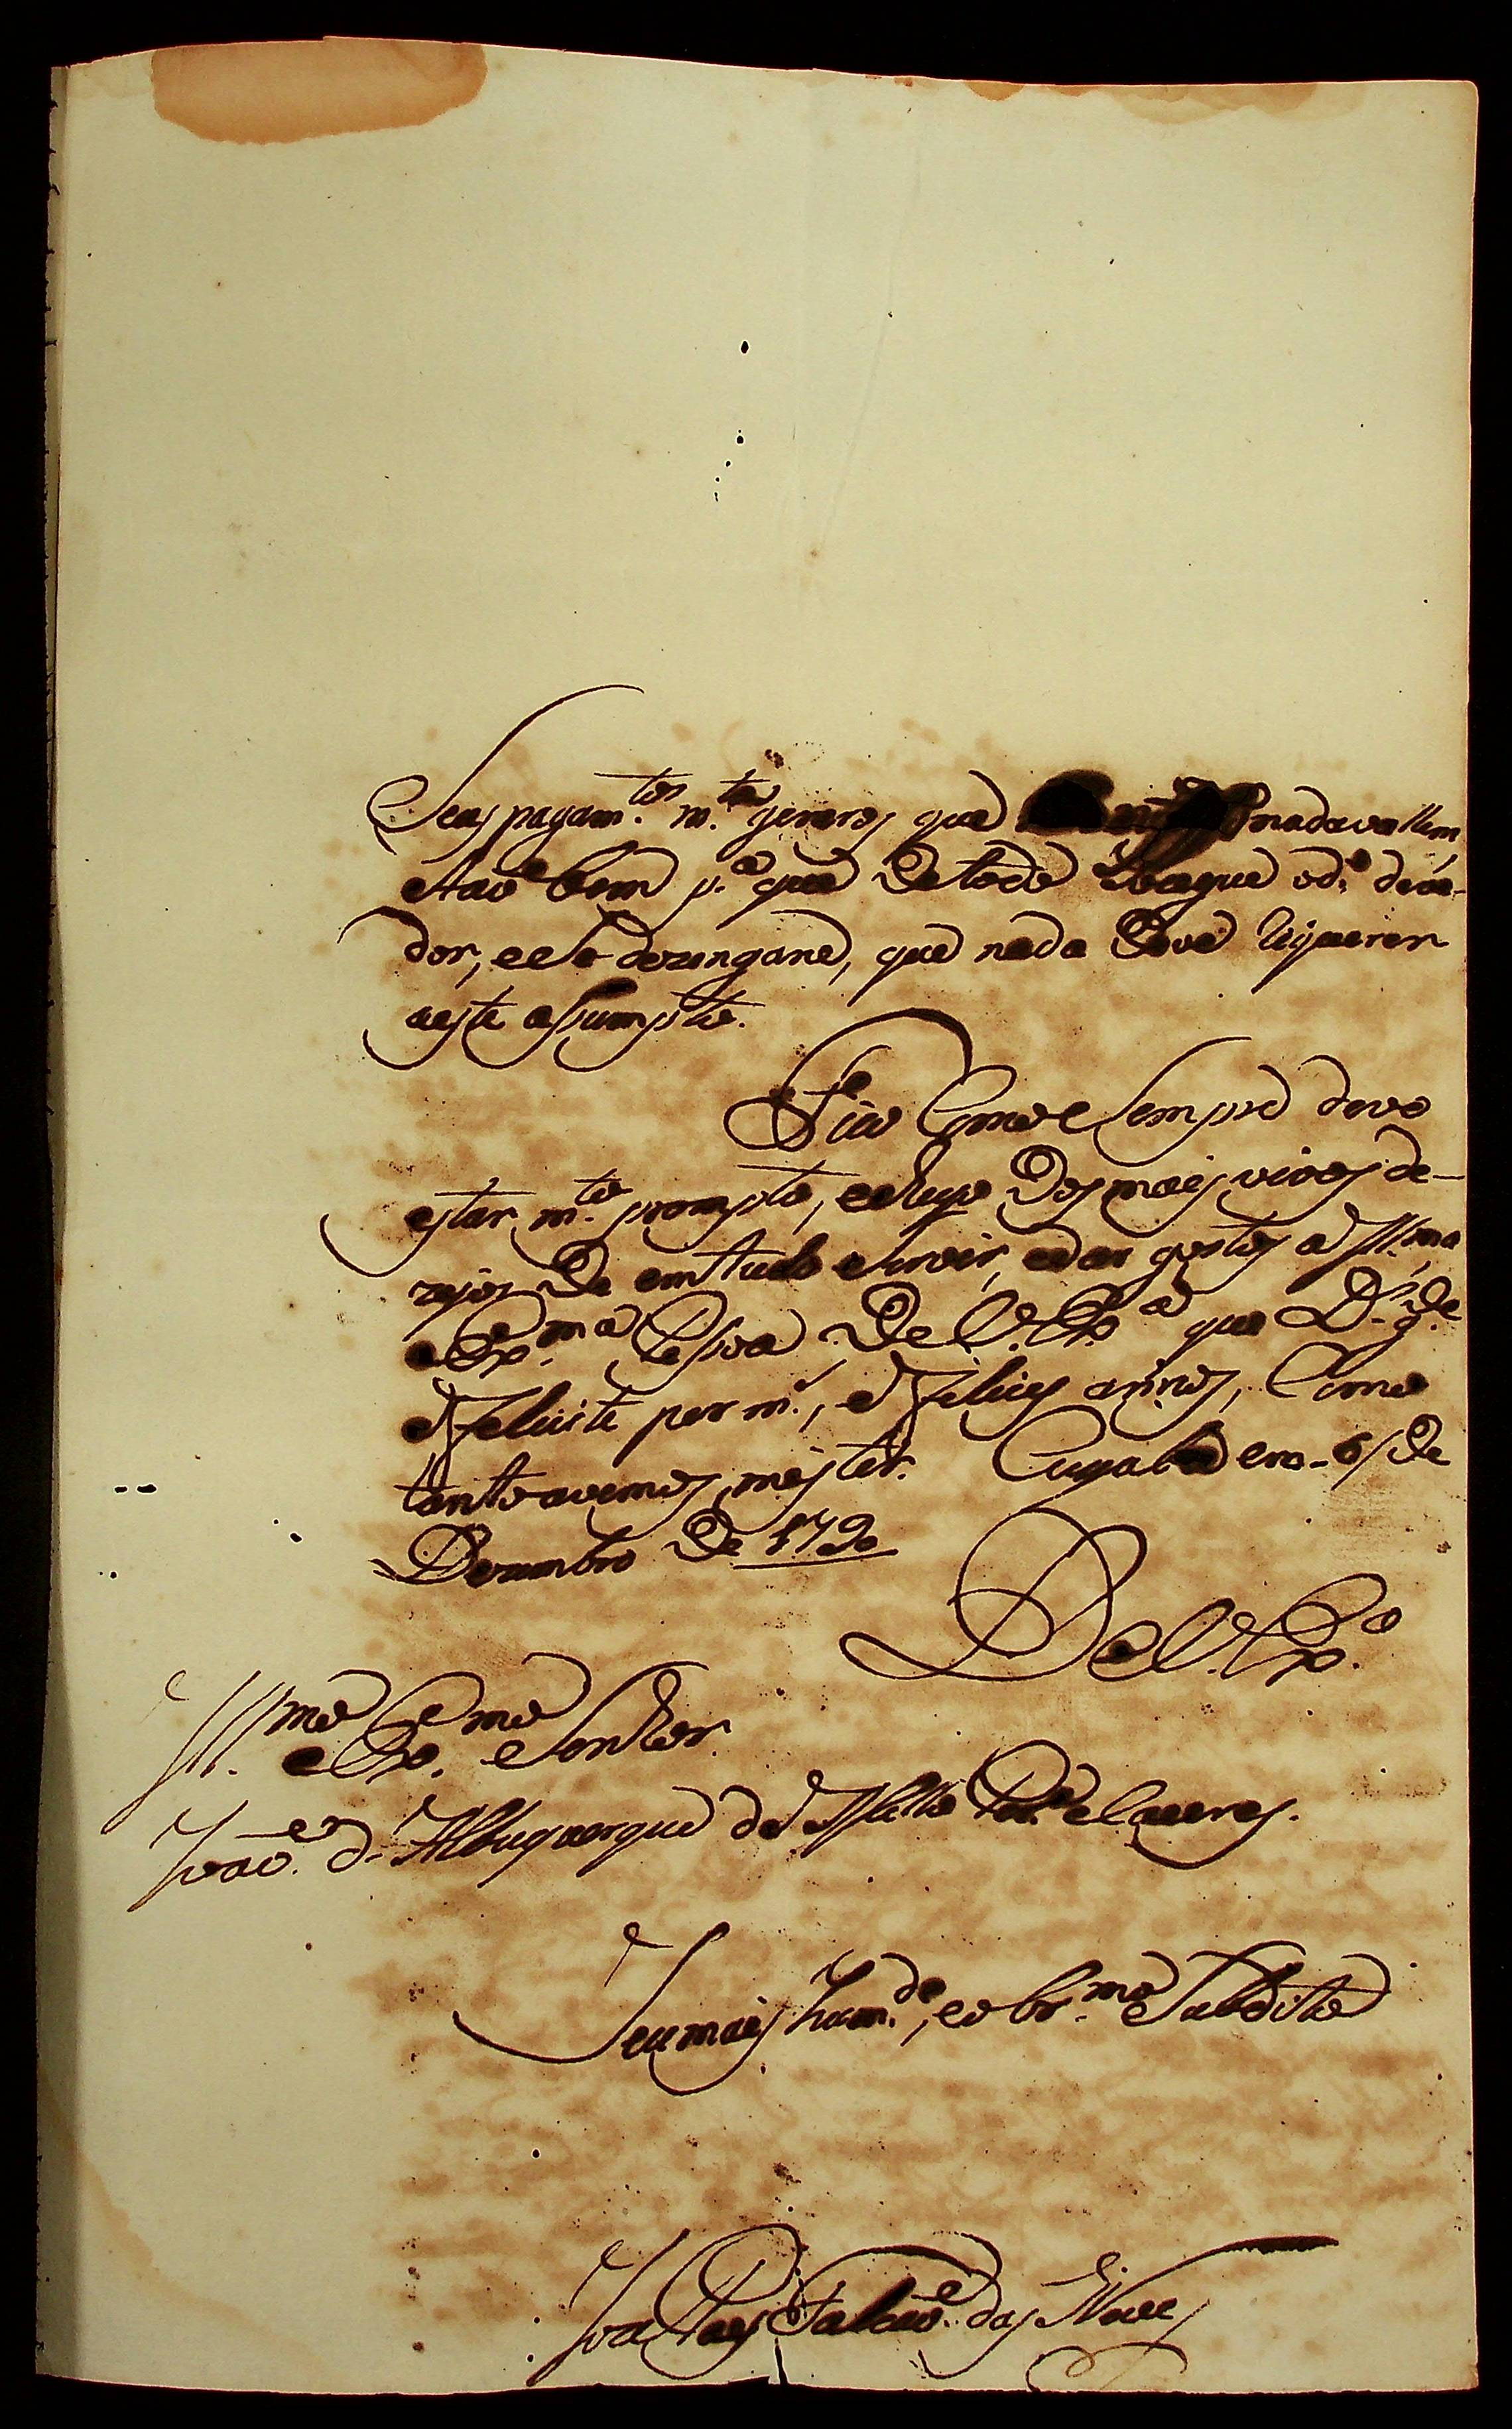 Seus pagam.tos m.ta generos que nada vallem,
e tão bem p.a que de todo pague o d.o deve-
dor, e elle dezengane, que nada deve riquerer
a este assumpto.
Fico como sempre devo
estar m.to prompto, e dos mais vivos de-
zejos de em tudo servir, e dar gostos a Ill.ma
e Ex.ma Pesoa de V. Ex.a que D.s g.de
e felicite por m.s, e felices annos, como
tanto avemos mester. Cuyabá em 6 de
Dezembro de 1790
De V. Ex.a
Ill.mo e Ex.mo Senhor
João d' Albuquerque de Mello Per.a e Caceres.
Seu mais hum.de, e obr.mo subdito
João Paes Falcão das Neves